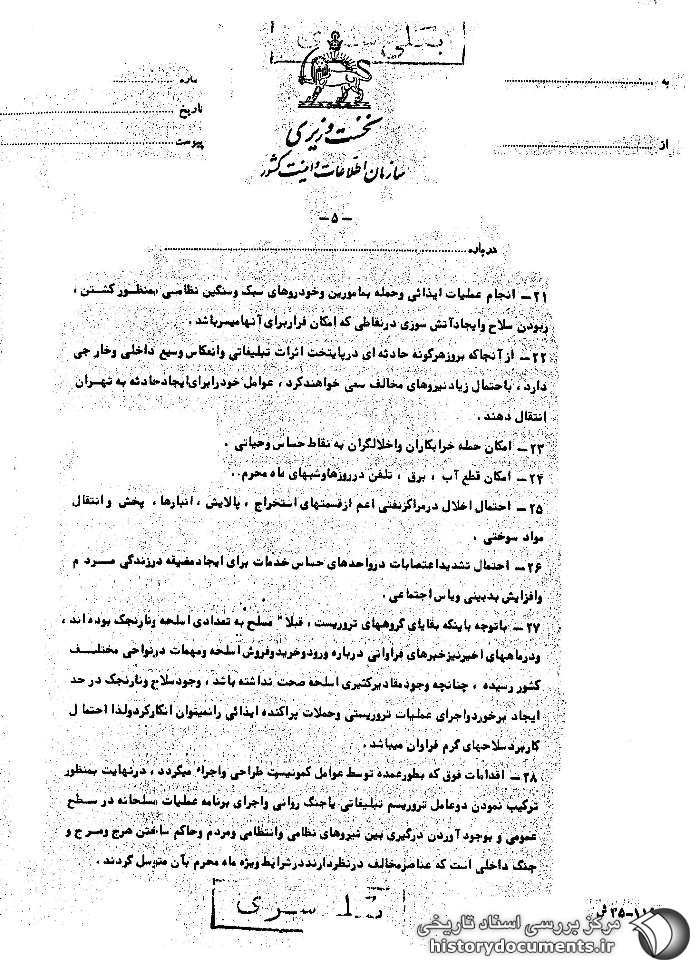 بکلی سری
به
از
شماره
تاریخ
پیوست
نخست وزیری
سازمان اطلاعات و امنیت کشور
-۵-
درباره
۲۱- انجام عملیات ایذائی وحمله بمامورین وخودروهای سبک وسنگین نظامی بمنظور کشتن ،
ربودن سلاح وایجادآتش سوزی درنقاطی که امکان فراربرای آنهامیسرباشد .
۲۲- از آنجاکه بروزهرگونه حادثه ای درپایتخت اثرات تبلیغاتی وانعکاس وسیع داخلی وخارجی
دارد ، باحتمال زیادنیروهای مخالف سعی خواهندکرد ، عوامل خودرابرای‌ایجادحادثه به تهران
انتقال دهند .
۲۳- امکان حمله خرابکاران واخلالگران به نقاط حساس وحیاتی .
۲۴- امکان قطع آب ، برق ، تلفن درروزهاوشبهای ماه محرم .
۲۵- احتمال اخلال درمراکزنفتی اعم ازقسمتهای استخراج ، پالایش ، انبارها ، پخش و انتقال
مواد سوختی .
۲۶- احتمال تشدیداعتصابات درواحدهای حساس خدمات برای ایجادمضیقه درزندگی مردم
وافزایش بدبینی ویاس اجتماعی .
۲۷- باتوجه باینکه بقایای گروههای تروریست ، قبلا" مسلح به تعدادی اسلحه ونارنجک بوده اند ،
ودرماههای اخیرنیزخبرهای فراوانی درباره ورودوخریدوفروش اسلحه ومهمات درنواحی مختلف
کشور رسیده ، چنانچه وجودمقادیرکثیری اسلحه صحت نداشته باشد ، وجودسلاح ونارنجک در حد
ایجاد برخوردواجرای عملیات تروریستی وحملات پراکنده ایذائی رانمیتوان انکارکردولذا احتمال
کاربردسلاحهای گرم فراوان میباشد .
۲۸- اقدامات فوق که بطورعمده توسط عوامل کمونیست طراحی واجراء میگردد ، درنهایت بمنظور
ترکیب نمودن دوعامل تروریسم تبلیغاتی یاجنگ روانی واجرای برنامه عملیات مسلحانه در سطح
عمومی و بوجود آوردن درگیری بین نیروهای نظامی وانتظامی ومردم وحاکم ساختن هرج ومرج و
جنگ داخلی است که عناصرمخالف درنظردارنددرشرایط ویژه ماه محرم بآن متوسل گردند .
بکلی سری
مرکز بررسی اسناد تاریخی
historydocuments.ir